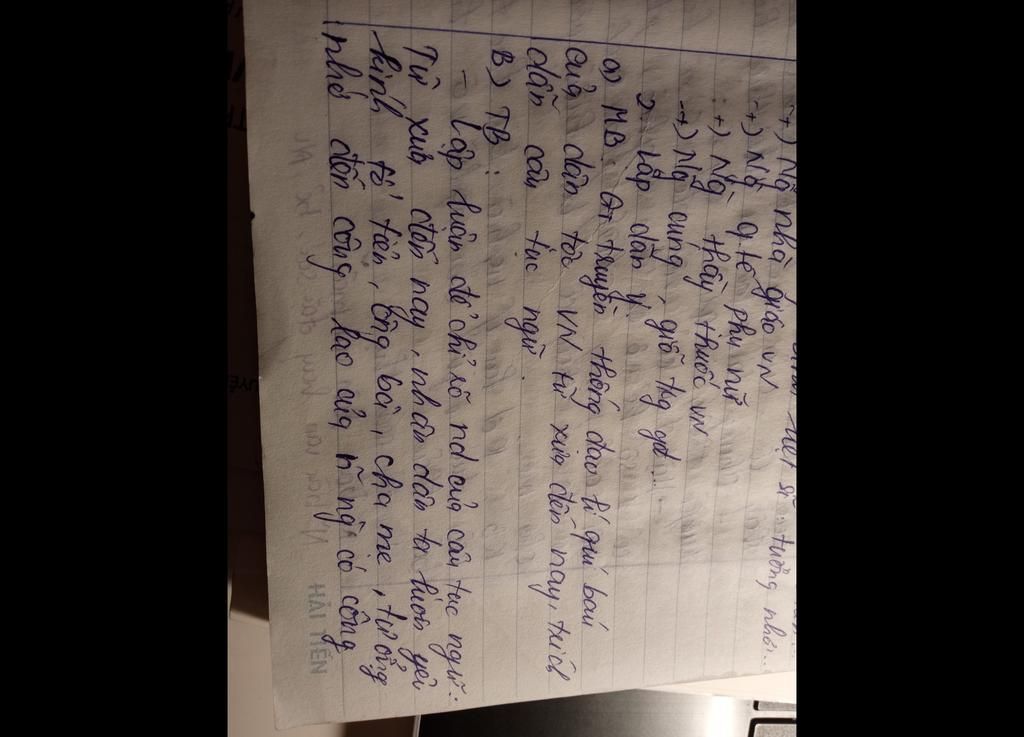 liệt sĩ... tưởng nhớ...
-+) Ng nhà giáo VN
-+) Ng q tế phụ nữ
-+) Ng thầy thuốc VN
-+) Ng cúng, giỗ tṛg gđ...
2. Lập dàn ý.
a) MB: Gt truyền thống đạo lí quí báu
của dân tộc VN từ xưa đến nay, trích
dẫn câu tục ngữ.
B) TB:
- Lập luận để chỉ rõ nd của câu tục ngữ:
Từ xưa đến nay, nhân dân ta luôn yêu
kính tổ tiên, ông bà, cha mẹ, tưởng
nhớ đến công lao của ~ng` có công
HẢI TIẾN